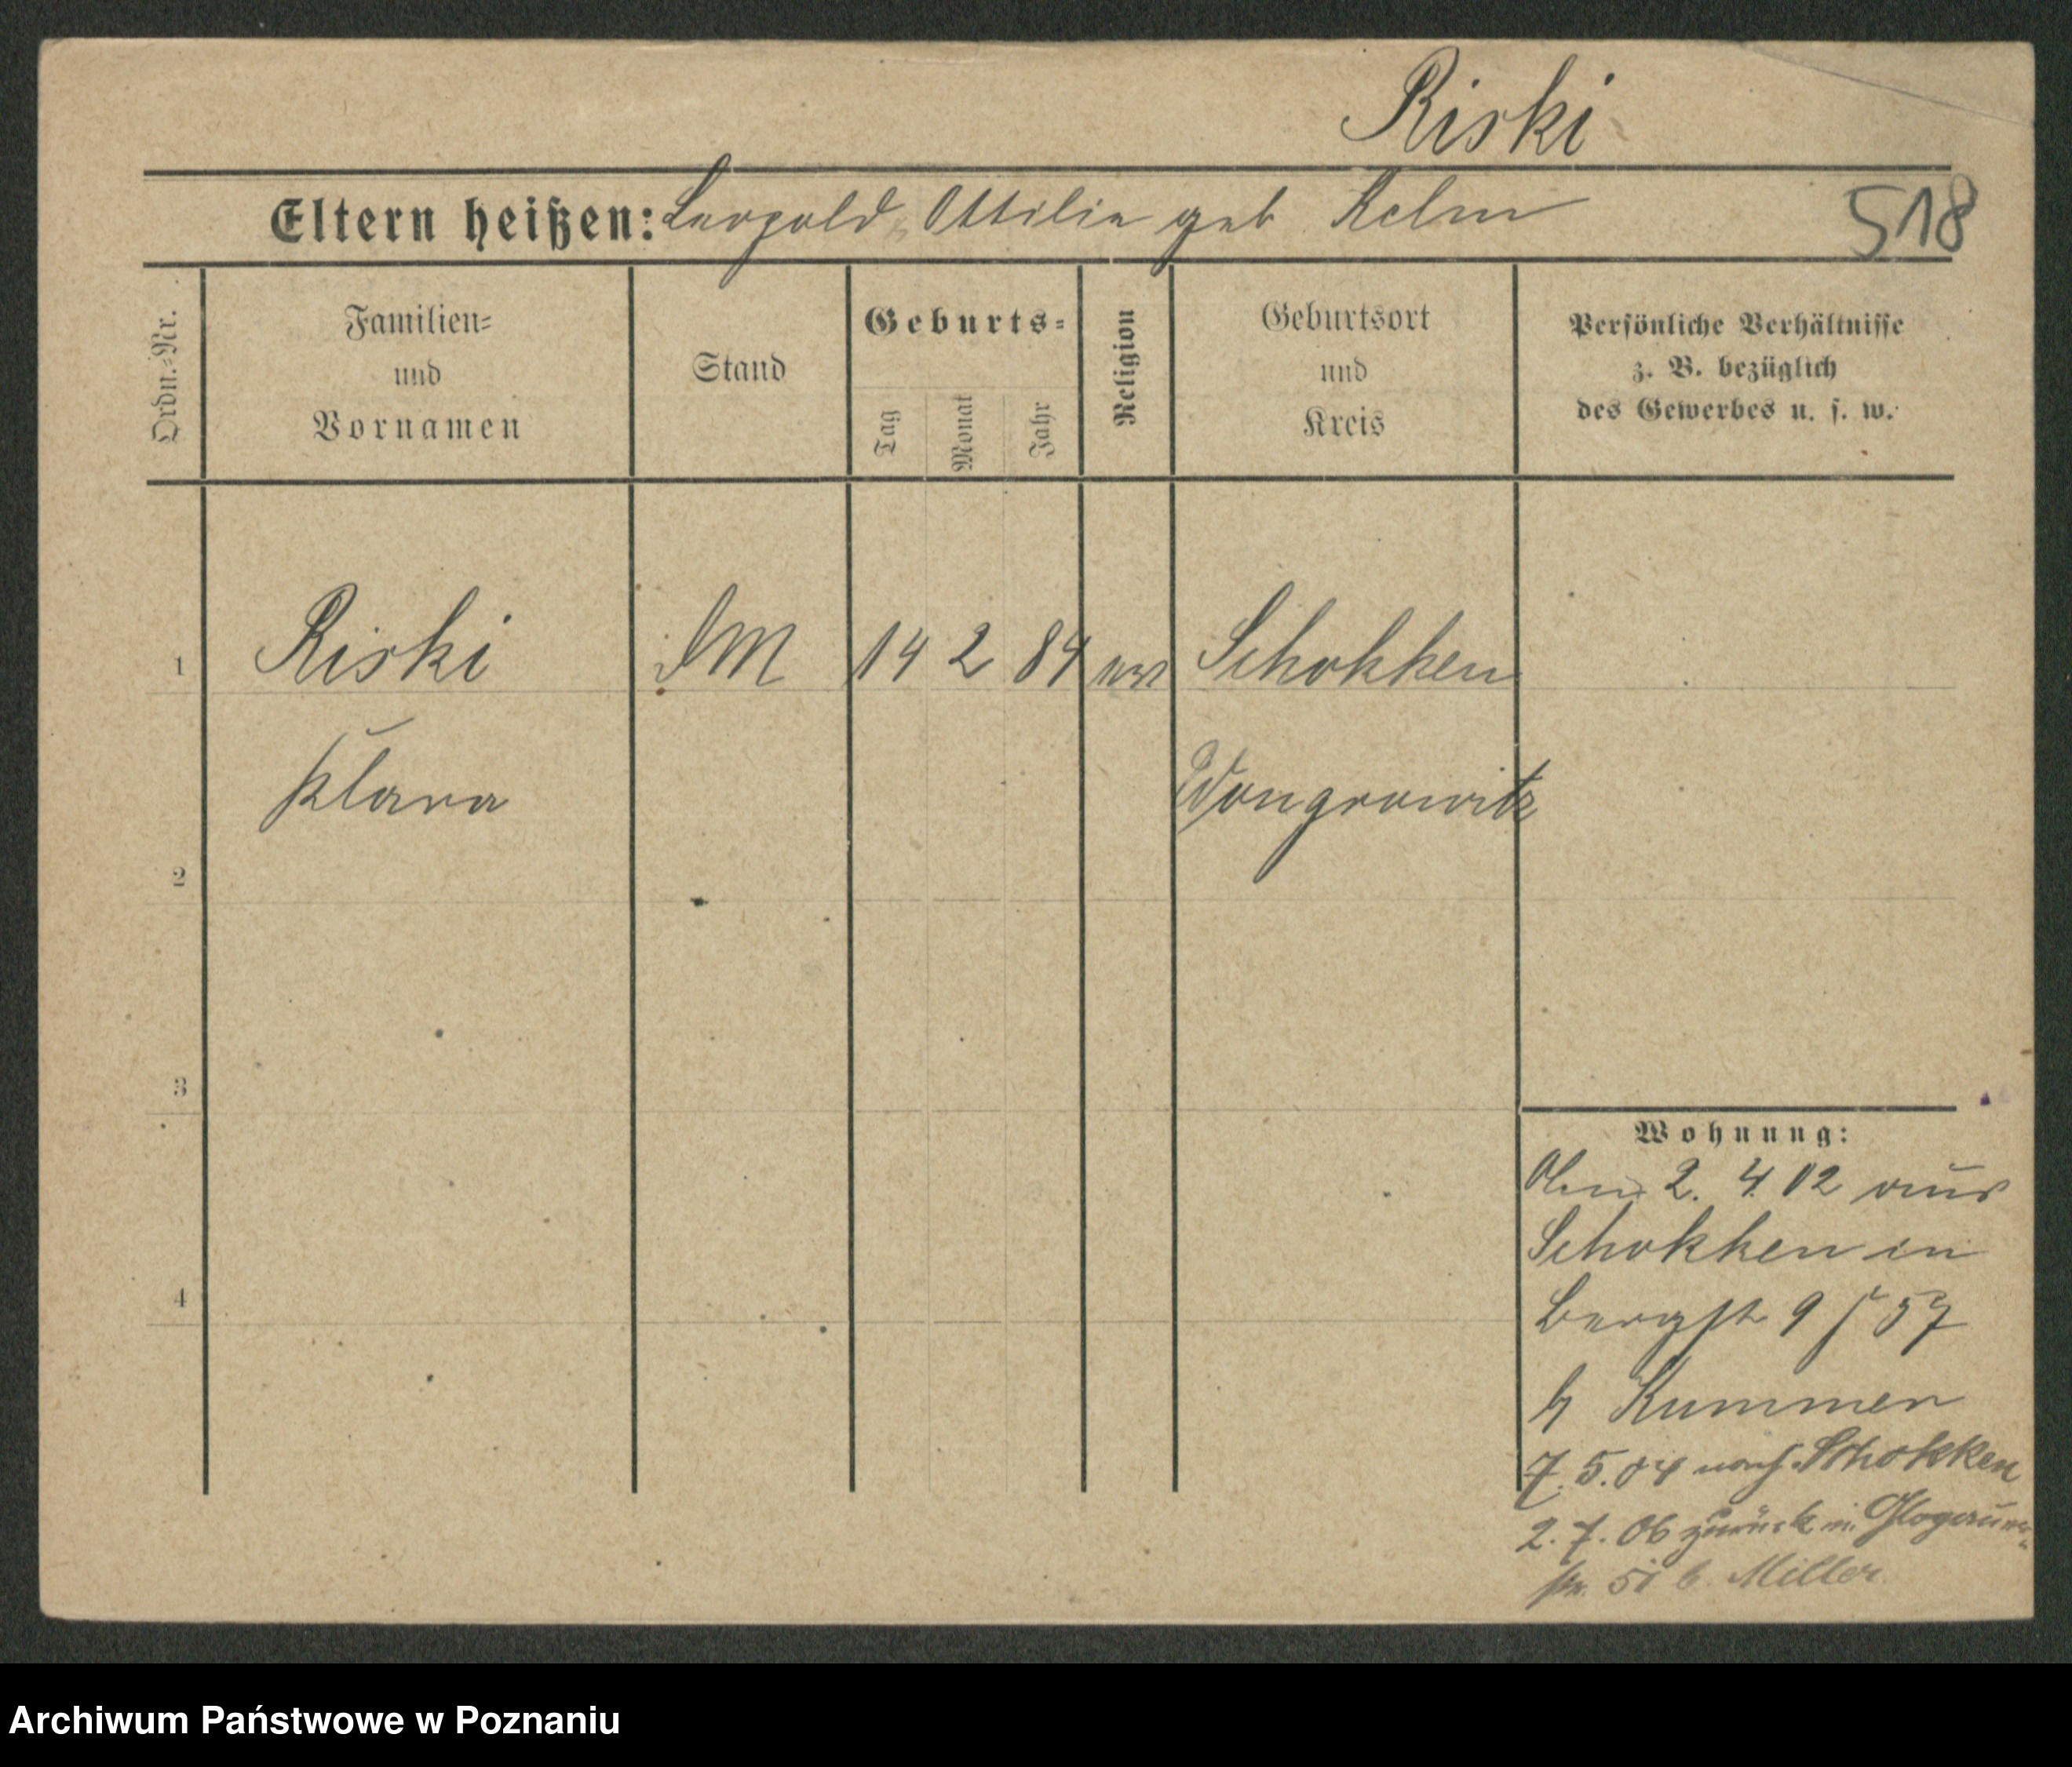 Riski
Eltern heißen: Leopold, Ottilie geb Kelm
518
Ordn.-Nr.
Familien-
und
Vornamen
Stand
Geburts-
Tag
Monat
Jahr
Religion
Geburtsort
und
Kreis
Persönliche Verhältnisse
z. B. bezüglich
des Gewerbes u. s. w.
1 Riski DM 14 2 84 ev Schokken
Klara Wongrowitz
2
3
4
Wohnung:
2. 4. 02 aus
Schokken in
Bergstr 9 / 57
b Kummer
7. 5. 04 nach Schokken
2. 7. 06 zurück in Glogauer-
str. 51 b. Miller
Archiwum Państwowe w Poznaniu